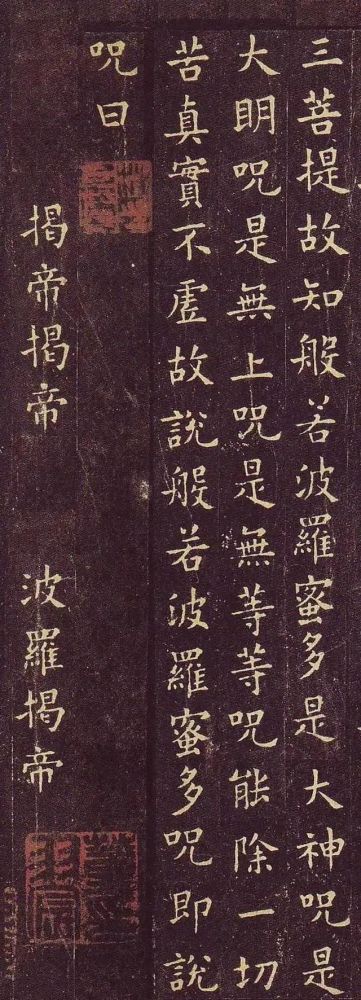 三菩提故知般若波羅蜜多是大神咒是
大明咒是無上咒是無等等咒能除一切
苦真實不虛故說般若波羅蜜多咒即說
咒曰
揭帝揭帝 波羅揭帝